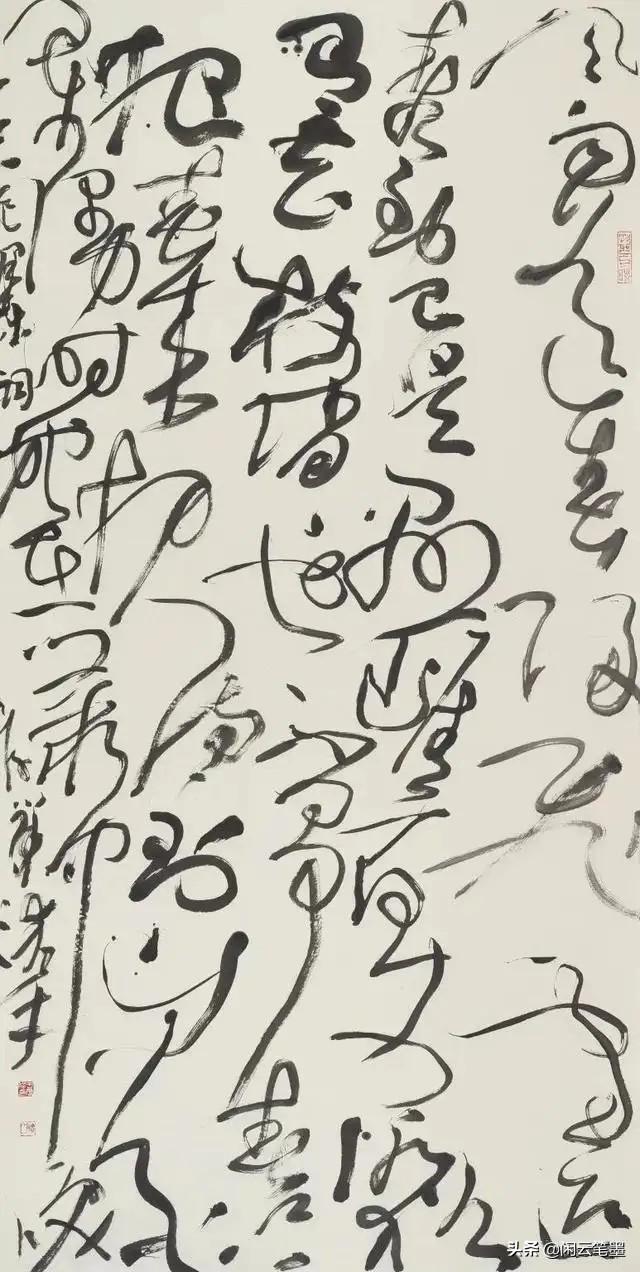 风雨送春归飞雪迎
春到已是悬崖百丈冰犹
有花枝俏也不争春只
把春来报待到山花
烂漫时她在丛中笑
毛泽东词
头条 @闲云笔墨